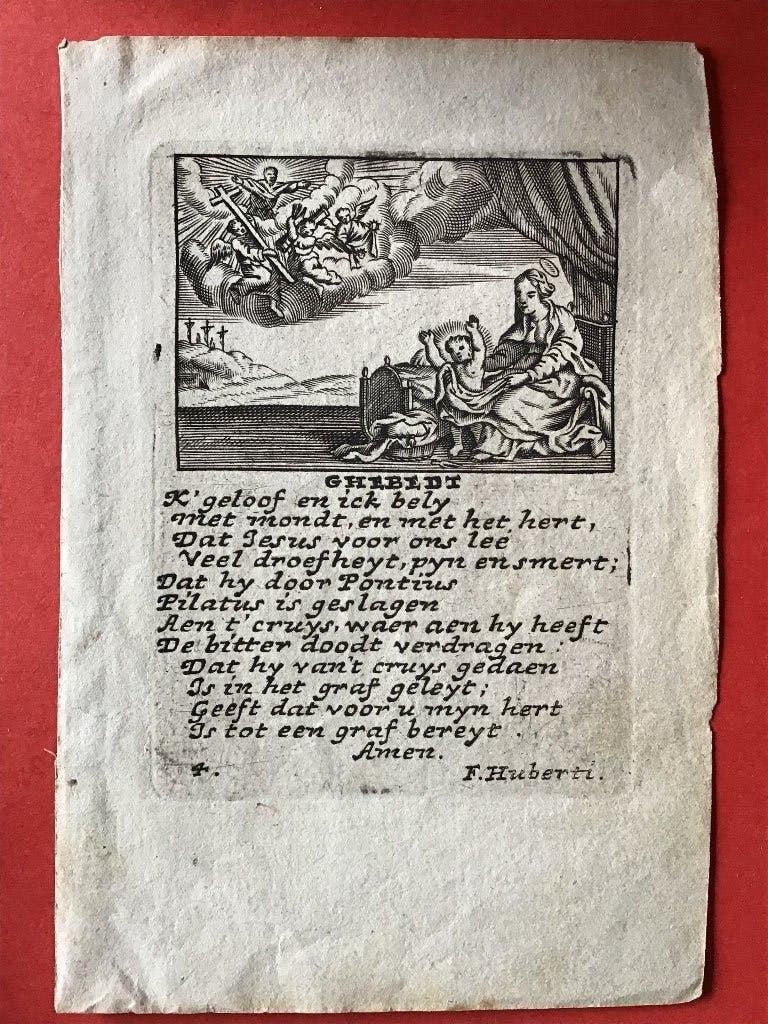 GHEBEDT
K'geloof en ick bely
Met mondt, en met het hert,
Dat Jesus voor ons lee
Veel droefheyt, pyn en smert;
Dat hy door Pontius
Pilatus is geslagen
Aen t'cruys, waer aen hy heeft
De bitter doodt verdragen:
Dat hy van't cruys gedaen
Is in het graf geleyt;
Geeft dat voor u myn hert
Is tot een graf bereyt.
Amen.
4. F. Huberti.